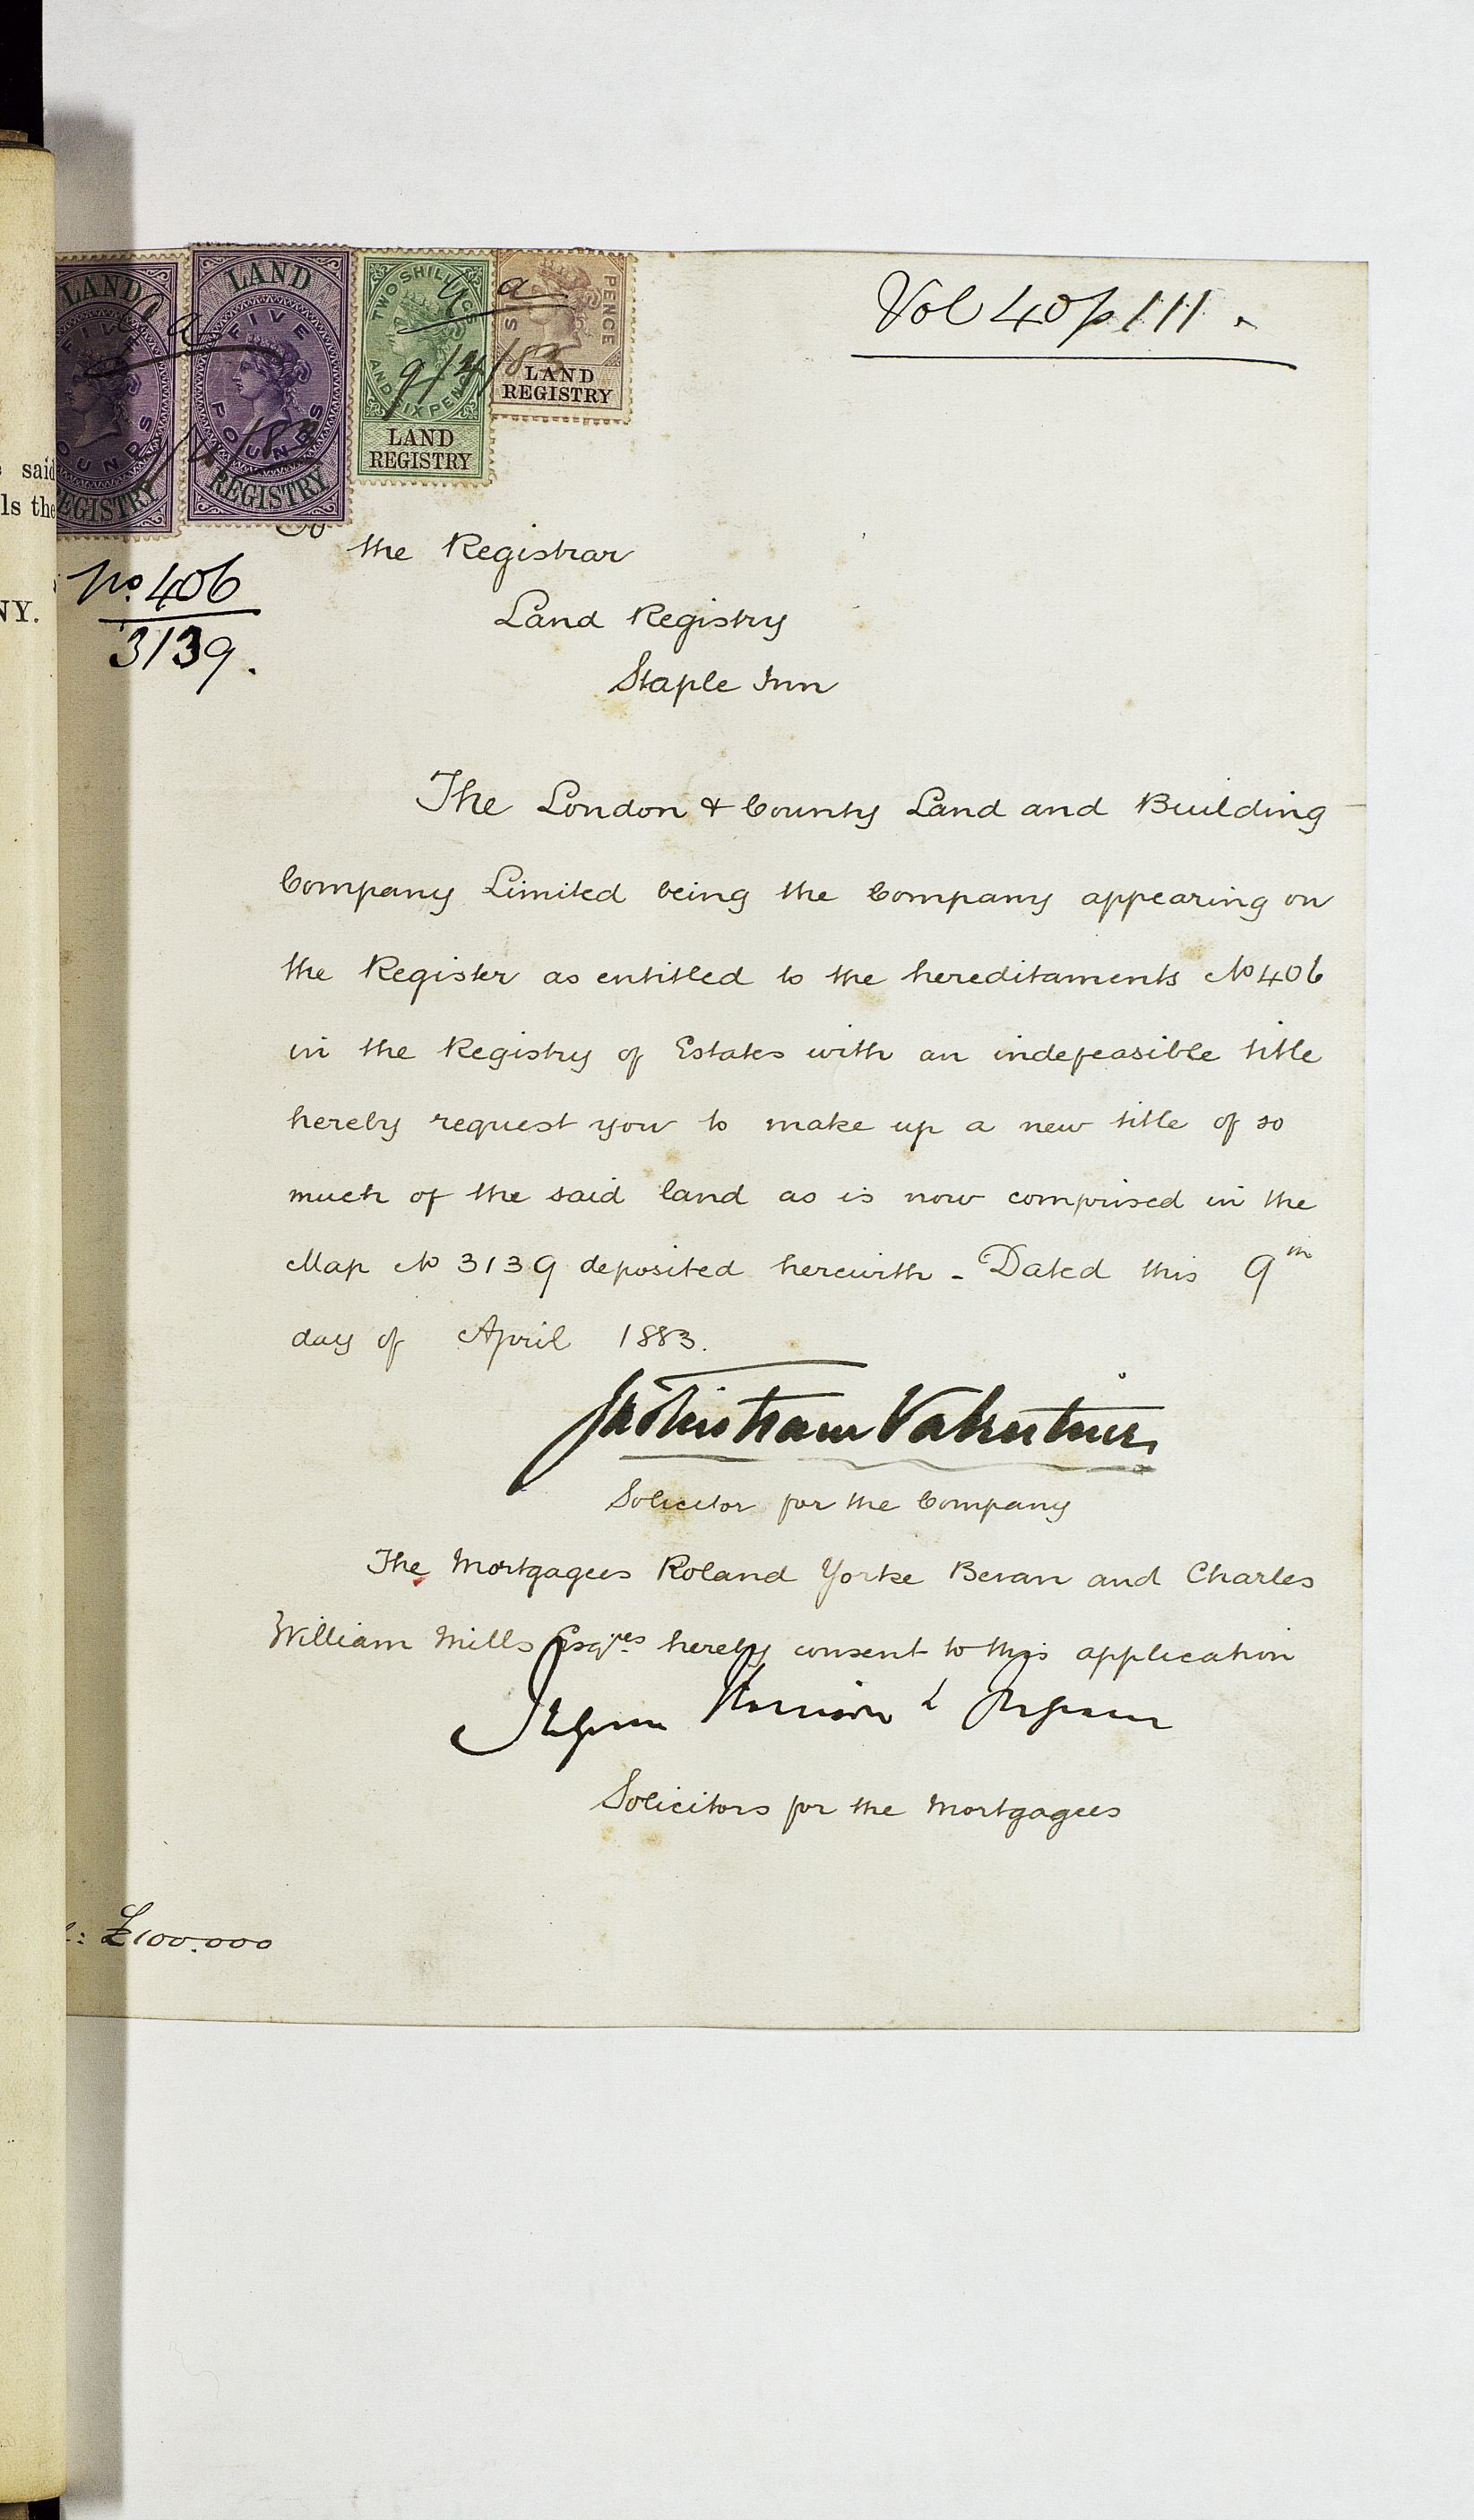 Vol 40 p 111.
LAND
FIVE
POUNDS
REGISTRY
LAND
FIVE
POUNDS
REGISTRY
TWO SHILLINGS
AND SIX PENCE
LAND
REGISTRY
SIX PENCE
LAND
REGISTRY
9/4/83
said
ls the
NY.
No. 406
3139.
To the Registrar
Land Registry
Staple Inn
The London & County Land and Building
Company Limited being the Company appearing on
the Register as entitled to the hereditaments No 406
in the Registry of Estates with an indefeasible title
hereby request you to make up a new title of so
much of the said land as is now comprised in the
Map No 3139 deposited herewith - Dated this 9th
day of April 1883.
Valentine
Solicitor for the Company
The Mortgagees Roland Yorke Bevan and Charles
William Mills Esqres hereby consent to this application
Solicitors for the Mortgagees
£100.000